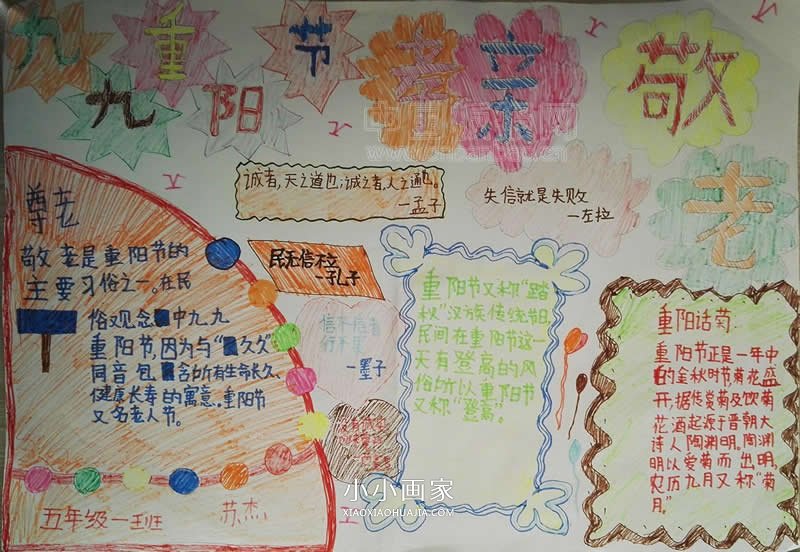 九
重
节
九
阳
老
亲
敬
老
诚者,天之道也;诚之者,人之道也。
—孟子
失信就是失败
—左拉
尊老
敬老是重阳节的
主要习俗之一。在民
俗观念 中九九
重阳节,因为与“ 久久”
同音包 含所有生命长久、
健康长寿的寓意。重阳节
又名老人节。
五年级一班
苏杰
民无信不立
—孔子
—墨子
重阳节又称“踏
秋”汉族传统节日
民间在重阳节这一
天有登高的风
俗所以重阳节
又称“登高”。
重阳话菊
重阳节正是一年中
的金秋时节菊花盛
开,据传赏菊及饮菊
花酒起源于晋朝大
诗人陶渊明。陶渊
明以爱菊而出明,
农历九月又称“菊
月。”
小小画家
XIAOXIAOHUAJIA.COM